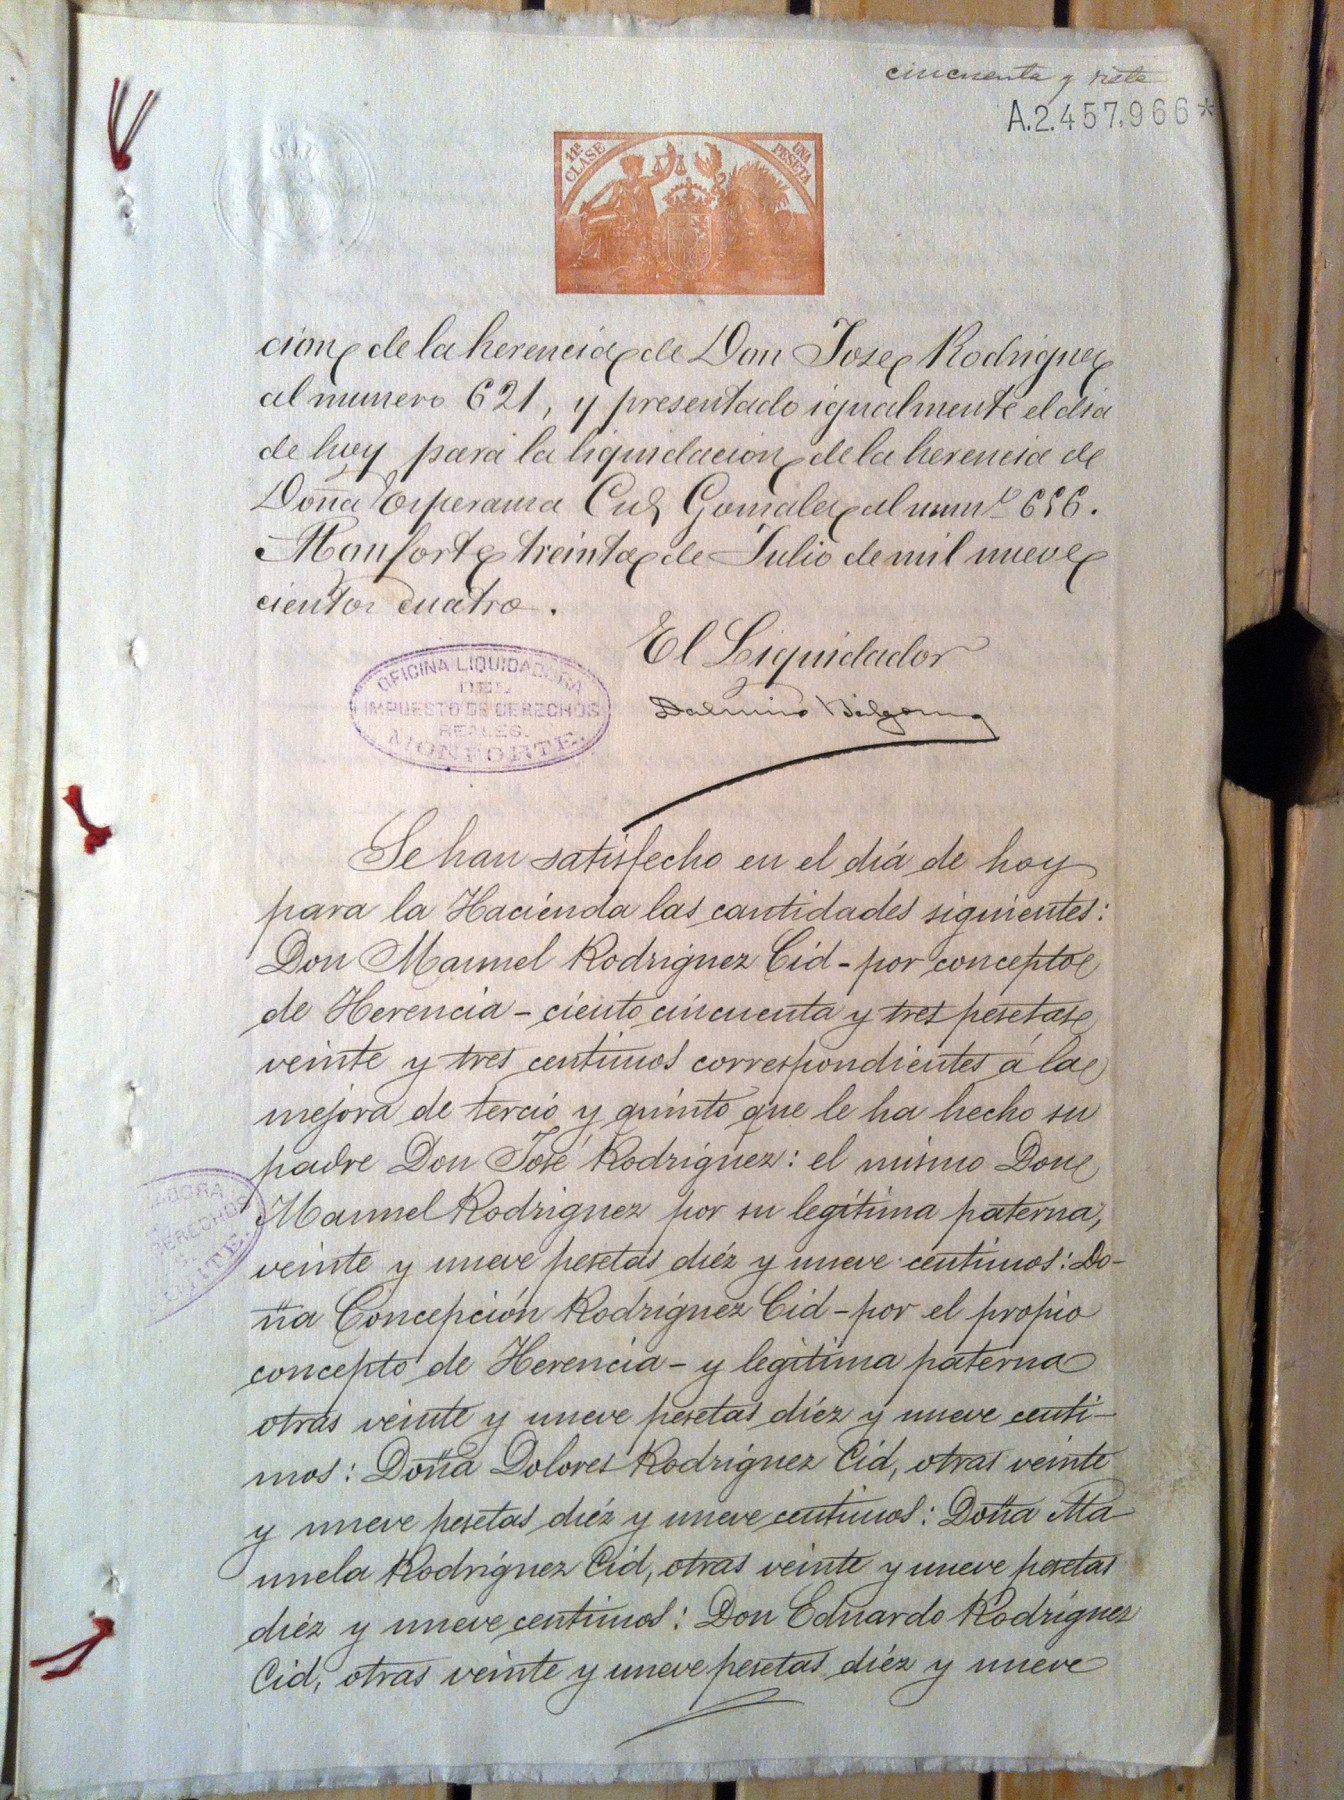 cincuenta y siete
A.2.457,966*
11ª CLASE
UNA PESETA
cion de la herencia de Don Jose Rodriguez
al numero 621, y presentado igualmente el dia
de hoy para la liquidacion de la herencia de
Doña Esperanza Cid Gonzalez al numº 656.
Monforte treinta de Julio de mil nueve
cientos cuatro.
El Liquidador
OFICINA LIQUIDADORA
DEL
IMPUESTO DE DERECHOS
REALES.
MONFORTE.
Se han satisfecho en el diá de hoy
para la Haciénda las cantidades siguientes:
Don Manuel Rodriguez Cid - por concepto
de Herencia - ciento cincuenta y tres pesetas
veinte y tres centimos correspondientes á la
mejora de tercio y quinto que le ha hecho su
padre Don José Rodriguez: el mismo Don
Manuel Rodriguez por su legítima paterna,
veinte y nueve pesetas diéz y nueve centimos: Do-
ña Concepción Rodriguez Cid - por el propio
concepto de Herencia - y legitima paterna
otras veinte y nueve pesetas diéz y nueve centi-
mos: Doña Dolores Rodriguez Cid, otras veinte
y nueve pesetas diéz y nueve centimos: Doña Ma
nuela Rodriguez Cid, otras veinte y nueve pesetas
diéz y nueve centimos: Don Eduardo Rodríguez
Cid, otras veinte y nueve pesetas diéz y nueve
DORA
DERECHOS